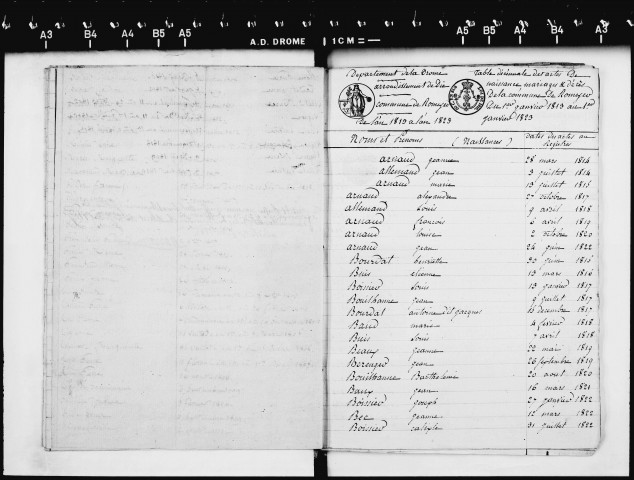 A3 B4 A4 B5 A5 A.D. DROME 1 CM = A5 B5 A4 B4 A3
Departement de la Drome
arrondissement de Die
Commune de Romeyer
De l'an 1813 a l'an 1823
Table décennale des actes De
naissance, mariages & décès
De la commune De Romeyer
Du 1er janvier 1813 au 1er
janvier 1823
Noms et Prénoms (Naissances) Dates des actes au Registres
arnaud jeanne 28 mars 1814
allemand jean 3 juillet 1814
arnaud marie 13 juillet 1815
arnaud alexandre 27 octobre 1817
allemand Louis 9 avril 1818
arnaud françois 5 avril 1819
arnaud louise 2 octobre 1820
arnaud jean 24 juin 1822
Bourdat henriette 20 juin 1815
Buis etienne 13 mars 1816
Boissier Louis 13 janvier 1817
Bouilhanne jean 9 juillet 1817
Bourdat antoine dit jacques 15 decembre 1817
marie 4 fevrier 1818
Buis Louis 7 avril 1818
Beaux jeanne 22 mai 1819
Berenger jean 26 septembre 1819
Bouilhanne Barthelemi 20 aout 1820
Baux jean 16 mars 1821
Boissier joseph 27 janvier 1822
Bec jeanne 12 mars 1822
Boissier calixte 31 juillet 1822